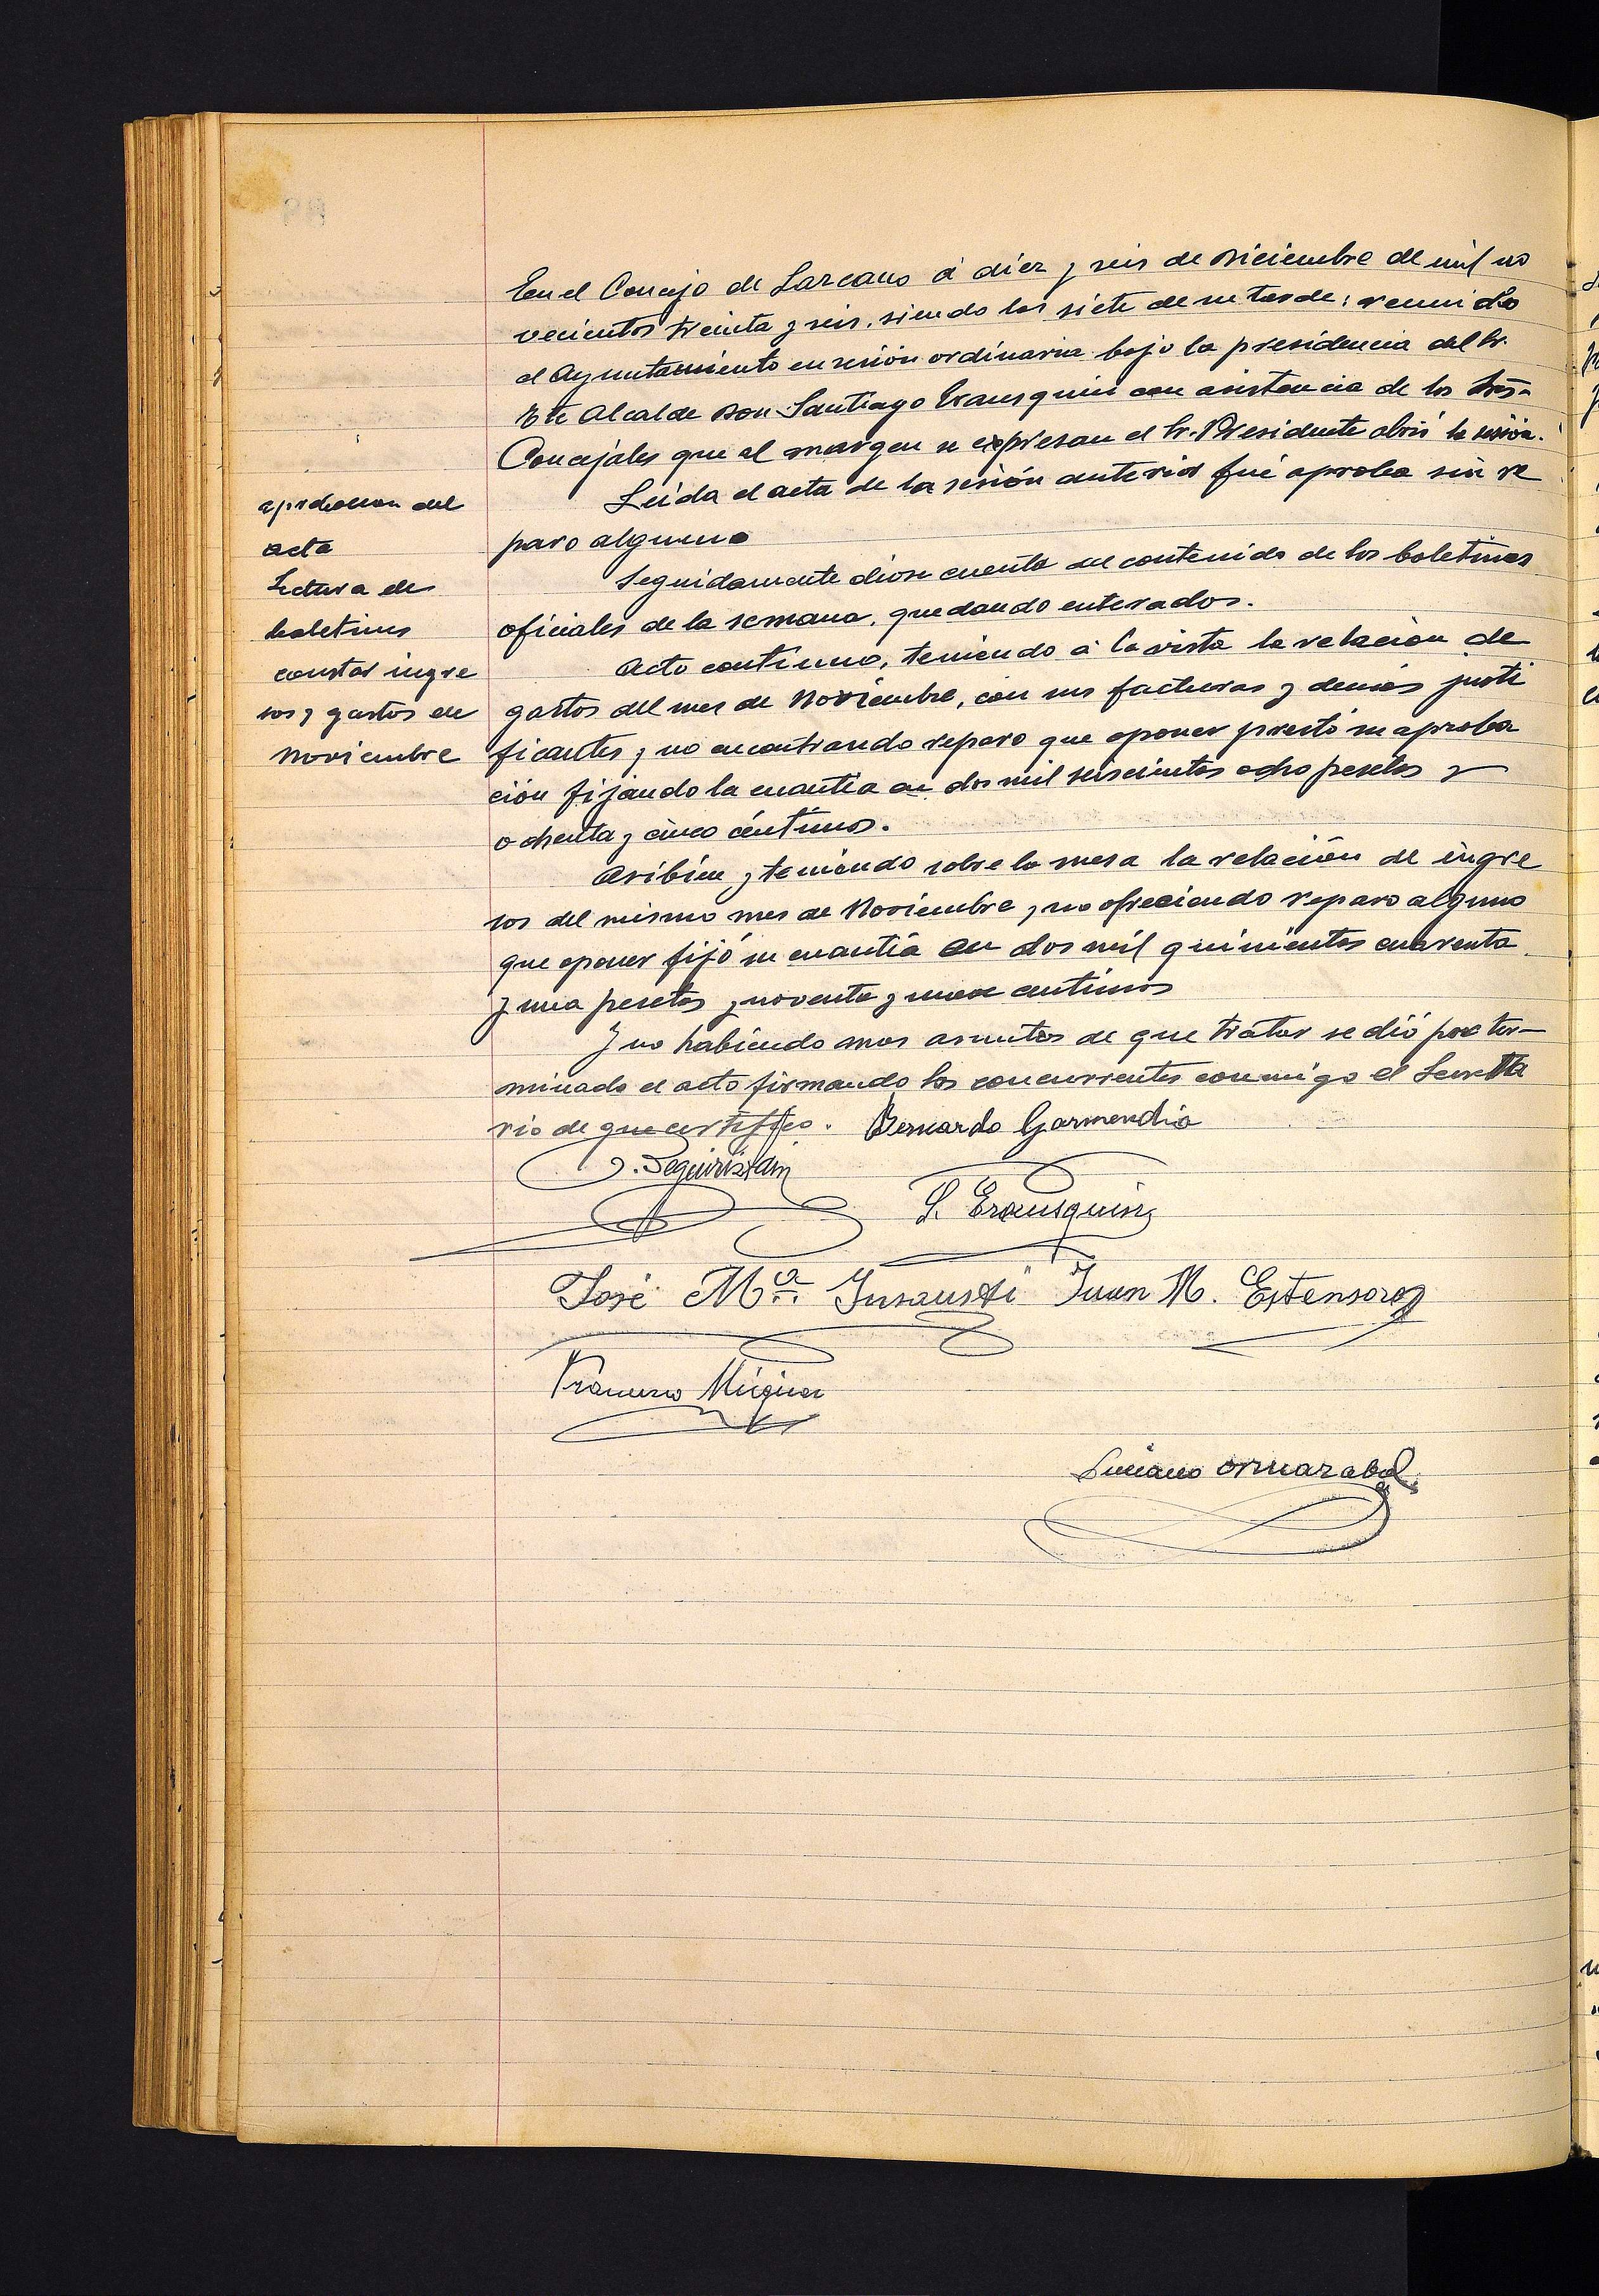 En el Concejo de Lazcano á diez y seis de Diciembre de mil no
vecientos treinta y seis, siendo las siete de su tarde; reunido
el Ayuntamiento en sesión ordinaria bajo la presidencia del Sr.
Alcalde Don Santiago Erausquin con asistencia de los Sres
Concejales que al margen se expresan el Sr. Presidente abrió la sesión.
aprobacion del
acta
Leida el acta de la sesión anterior fué aproba sin re
paro alguno
Lectura de
boletines
Seguidamente dióse cuenta del contenido de los boletines
oficiales de la semana, quedando enterados.
constar ingre
sos y gastos de
Noviembre
Acto continuo, teniendo á la vista la relación de
gastos del mes de Noviembre, con sus facturas y demás justi
ficantes, y no encontrando reparo que oponer prestó su aproba
ción fijando la cuantia en dos mil seiscientas ocho pesetas y
ochenta y cinco céntimos.
y teniendo sobre la mesa la relación de ingre
sos del mismo mes de Noviembre y no ofreciendo reparo alguno
que oponer fijó su cuantía en dos mil quinientas cuarenta
y una pesetas y noventa y nueve centimos
Y no habiendo mas asuntos de que tratar se dió por ter-
minado el acto firmando los concurrentes conmigo el Secreta
rio de que certifico. Bernardo Garmendia
J. Seguiristain
S. Erausquin
José Mª Insausti Juan M. Estensoro
Francisco Múgica
Luciano Ormazabal